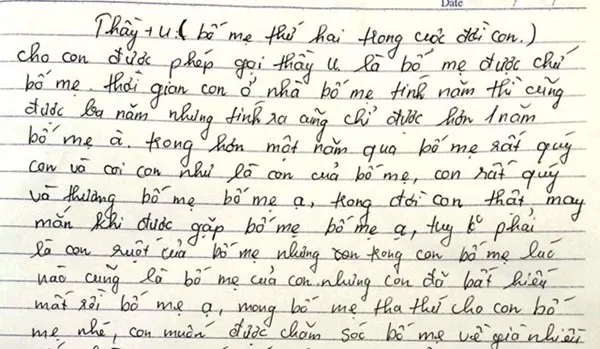 Date
Thầy + U. ( bố mẹ thứ hai trong cuộc đời con.)
cho con được phép gọi thầy U. là bố mẹ được chứ
bố mẹ. thời gian con ở nhà bố mẹ tính năm thì cũng
được ba năm nhưng tính ra cũng chỉ được hơn 1 năm
bố mẹ à. trong hơn một năm qua bố mẹ rất quý
con và coi con như là con của bố mẹ, con rất quý
và thương bố mẹ bố mẹ ạ, trong đời con thật may
mắn khi được gặp bố mẹ bố mẹ ạ, tuy k° phải
là con ruột của bố mẹ nhưng trong con bố mẹ lúc
nào cũng là bố mẹ của con. nhưng con đã bất hiếu
mất rồi bố mẹ ạ, mong bố mẹ tha thứ cho con bố
mẹ nhé, con muốn được chăm sóc bố mẹ về già nhiều